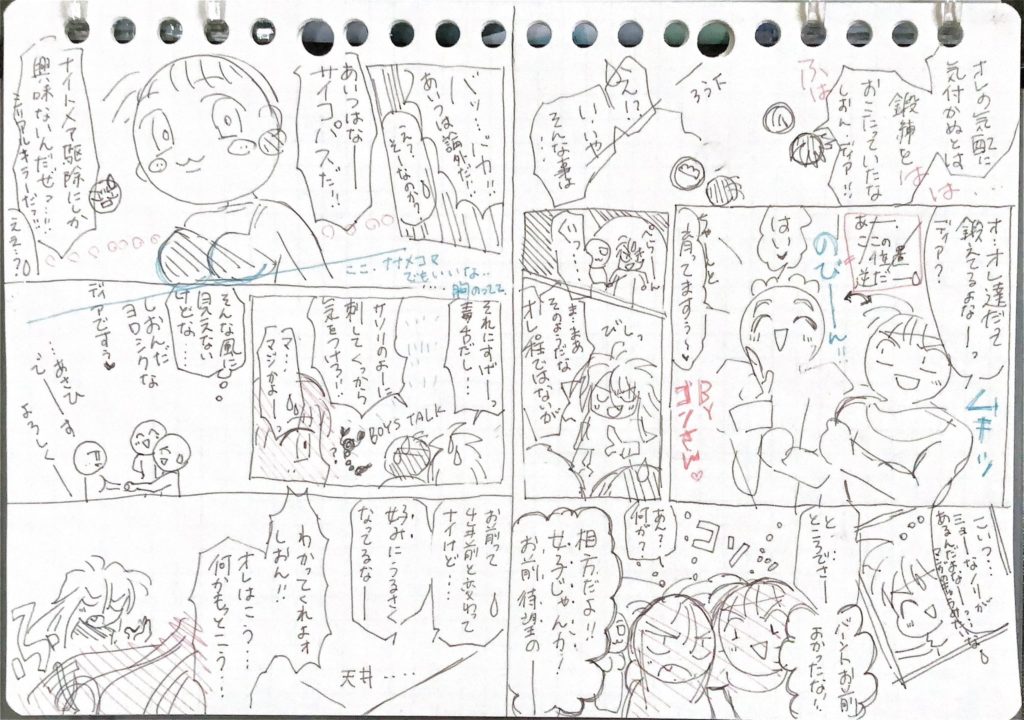 オレの気配に
気付かぬとは
鍛練を
おこたっていたな
しおん、ディア!!
ふはははは…
ろうド
えっ!?
いいや
そんな事は
…
オ…オレ達だって
鍛えてるよな〜っ
ディア?
ムキッ
あーっ
ここの位置
逆だ
のび〜〜ん!!
はい
育ってますぅ〜♥
BY
ゴンさん♡
ぐっ…
ま…まあ
そのようだな
オレ程ではないが
びしっ
こいつ…
あるんだよなー…
と…
ところでさー
パートナーお前
おかったな、
コソッ
あ?
何が?
相方だよ!!
女子じゃんか!
お前待望の─
バッ…バカ!!
あいつは論外だ!!
(えっ?
そーなのか?
あいつはな─
サイコパスだ!!
ナイトメア駆除にしか
興味ないんだぜっ…!!!
シリアルキラーだっ!!!
ええ…?
ここ、ナナメコマ
でもいいな…
胸のってて
それにすげーっ
毒舌だし…
サソリのよーに
刺してくっから
気をつけろ!!
BOYS TALK
マ…
マジかよーっ
そんな風に
見えない
けどな…
しおんだ
ヨロシクな
ディアですぅ♥
…あさひ
でーす
よろしく
お前って
4年前と変わって
ナイけど…
好みにうるさく
なってるな─
わかってくれよォ
しおん!!
オレはこう…
何かもっとこう…
天井……